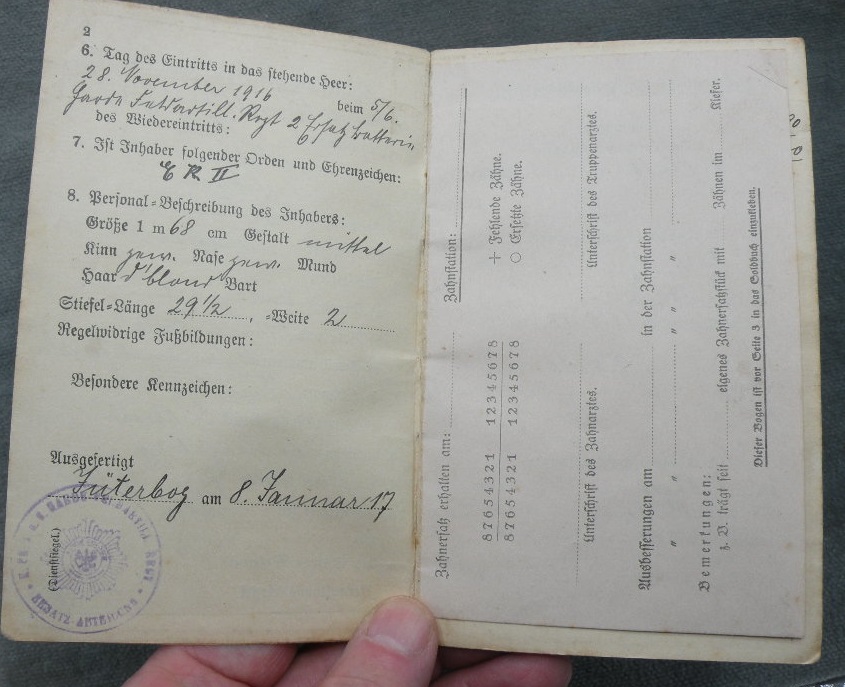 2
6. Tag des Eintritts in das stehende Heer:
28. November 1916 beim 5/6.
Garde Fußartill. Regt 2 Ersatz Batterie
des Wiedereintritts:
7. Ist Inhaber folgender Orden und Ehrenzeichen:
E K II
8. Personal-Beschreibung des Inhabers:
Größe 1 m 68 cm Gestalt mittel
Kinn gew. Nase gew. Mund
Haar d'blond Bart
Stiefel-Länge 29 1/2, -Weite 2
Regelwidrige Fußbildungen:
Besondere Kennzeichen:
Ausgefertigt
Jüterbog am 8. Januar 17
(Dienstsiegel.)
ERSATZ-ABTEILUNG
Zahnersatz erhalten am: Zahnstation:
87654321 12345678 + Fehlende Zähne.
87654321 12345678 ○ Ersetzte Zähne.
Unterschrift des Zahnarztes. Unterschrift des Truppenarztes.
Ausbesserungen am in der Zahnstation
" " " "
Bemerkungen:
z. B. trägt seit eigenes Zahnersatzstück mit Zähnen im Kiefer.
Dieser Bogen ist vor Seite 3 in das Soldbuch einzukleben.